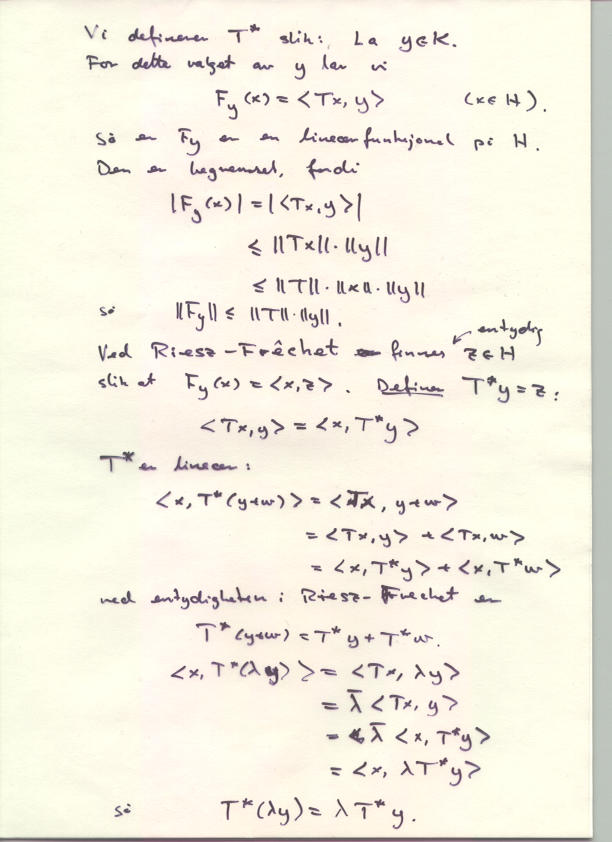 Vi definerer T* slik: La y∈K.
For dette valget av y lar vi
Fy(x) = <Tx, y> (x∈H).
Så er Fy er en lineærfunksjonal på H.
Den er begrenset, fordi
|Fy(x)| = |<Tx,y>|
≤ ||Tx||·||y||
≤ ||T||·||x||·||y||
så ||Fy|| ≤ ||T||·||y||.
entydig
Ved Riesz-Frêchet finnes z∈H
slik at Fy(x) = <x,z>. Definer T*y = z:
<Tx,y> = <x, T*y>
T* er lineær:
<x, T*(y+w)> = <Tx, y+w>
= <Tx,y> + <Tx,w>
= <x,T*y> + <x,T*w>
ved entydigheten i Riesz-Frechet er
T*(y+w) = T*y + T*w.
<x, T*(λy)> = <Tx, λy>
= λ̄ <Tx, y>
= λ̄ <x, T*y>
= <x, λT*y>
så T*(λy) = λT*y.